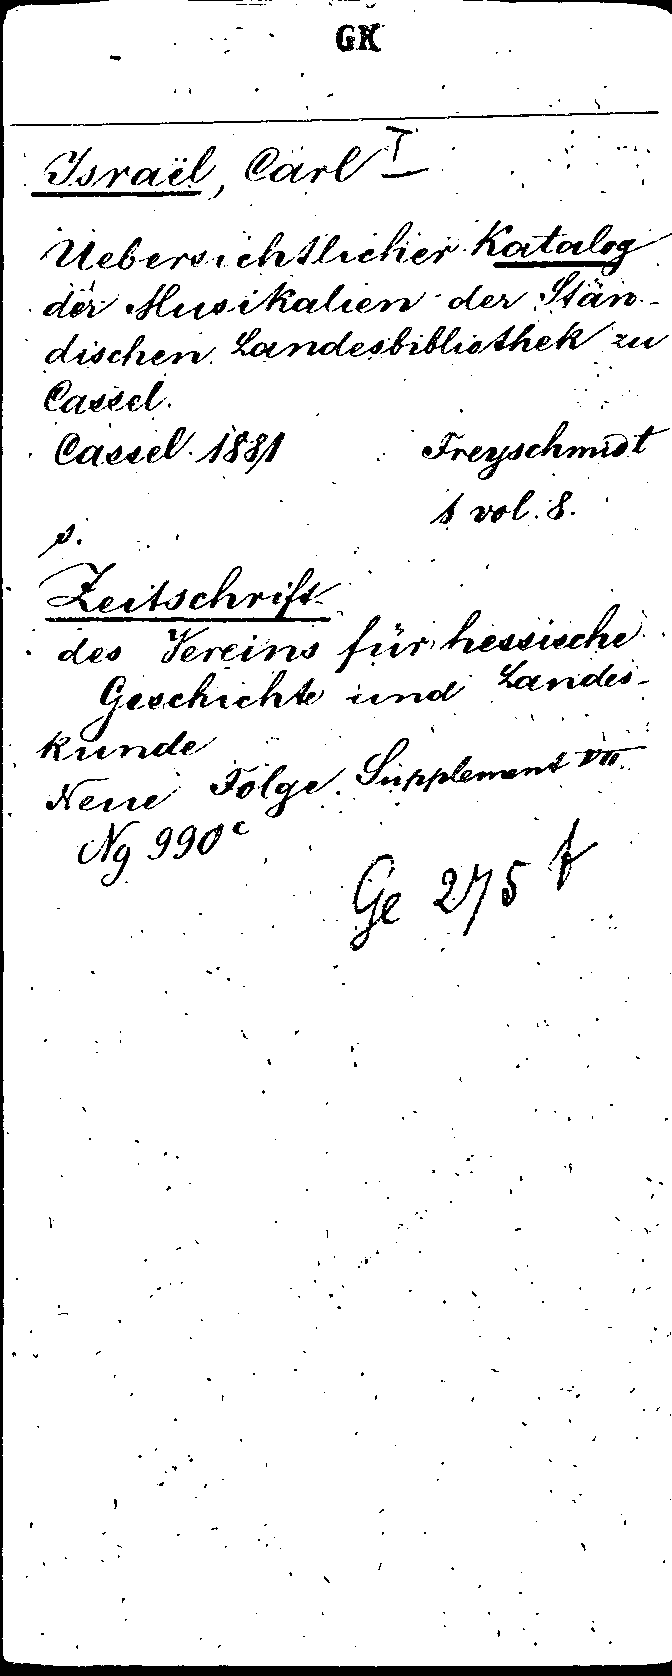 GK
Israël, Carl I
Uebersichtlicher Katalog
der Musikalien der Stän-
dischen Landesbibliothek zu
Cassel.
Cassel. 1881 Freyschmidt
1 vol. 8.
s.
Zeitschrift
des Vereins für hessische
Geschichte und Landes-
kunde
Neue Folge. Supplement VII.
Ng 990c
Ge 275 f